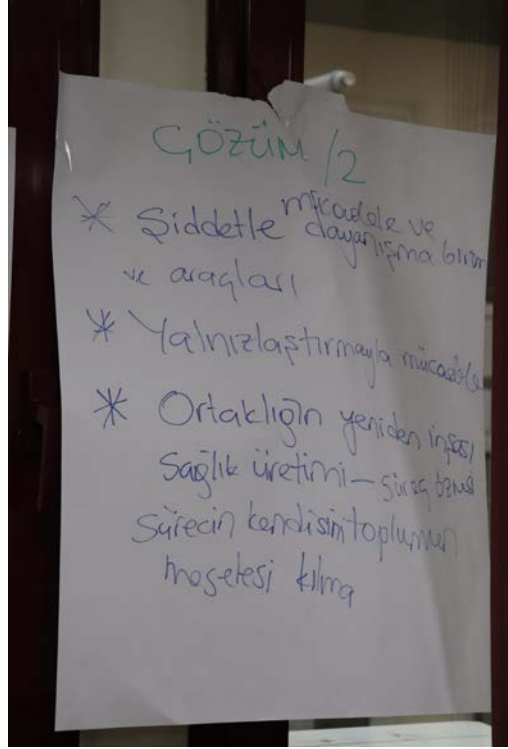 ÇÖZÜM /2
* Şiddetle mücadele ve
dayanışma birim
ve araçları
* Yalnızlaştırmayla mücadele
* Ortaklığın yeniden inşası
Sağlık üretimi – süreç
sürecin kendisini toplumun
meselesi kılma